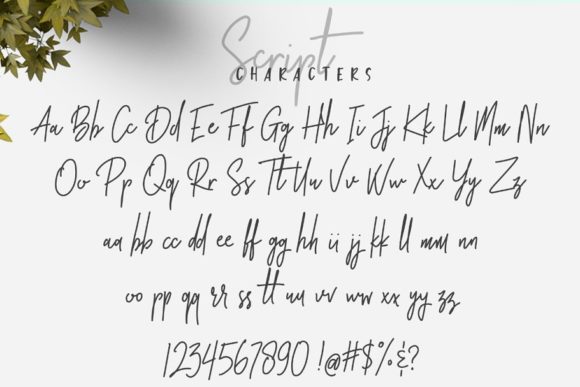 Script
CHARACTERS
Aa Bb Cc Dd Ee Ff Gg Hh Ii Jj Kk Ll Mm Nn
Oo Pp Qq Rr Ss Tt Uu Vv Ww Xx Yy Zz
aa bb cc dd ee ff gg hh ii jj kk ll mm nn
oo pp qq rr ss tt uu vv ww xx yy zz
1234567890 !@#$%&?